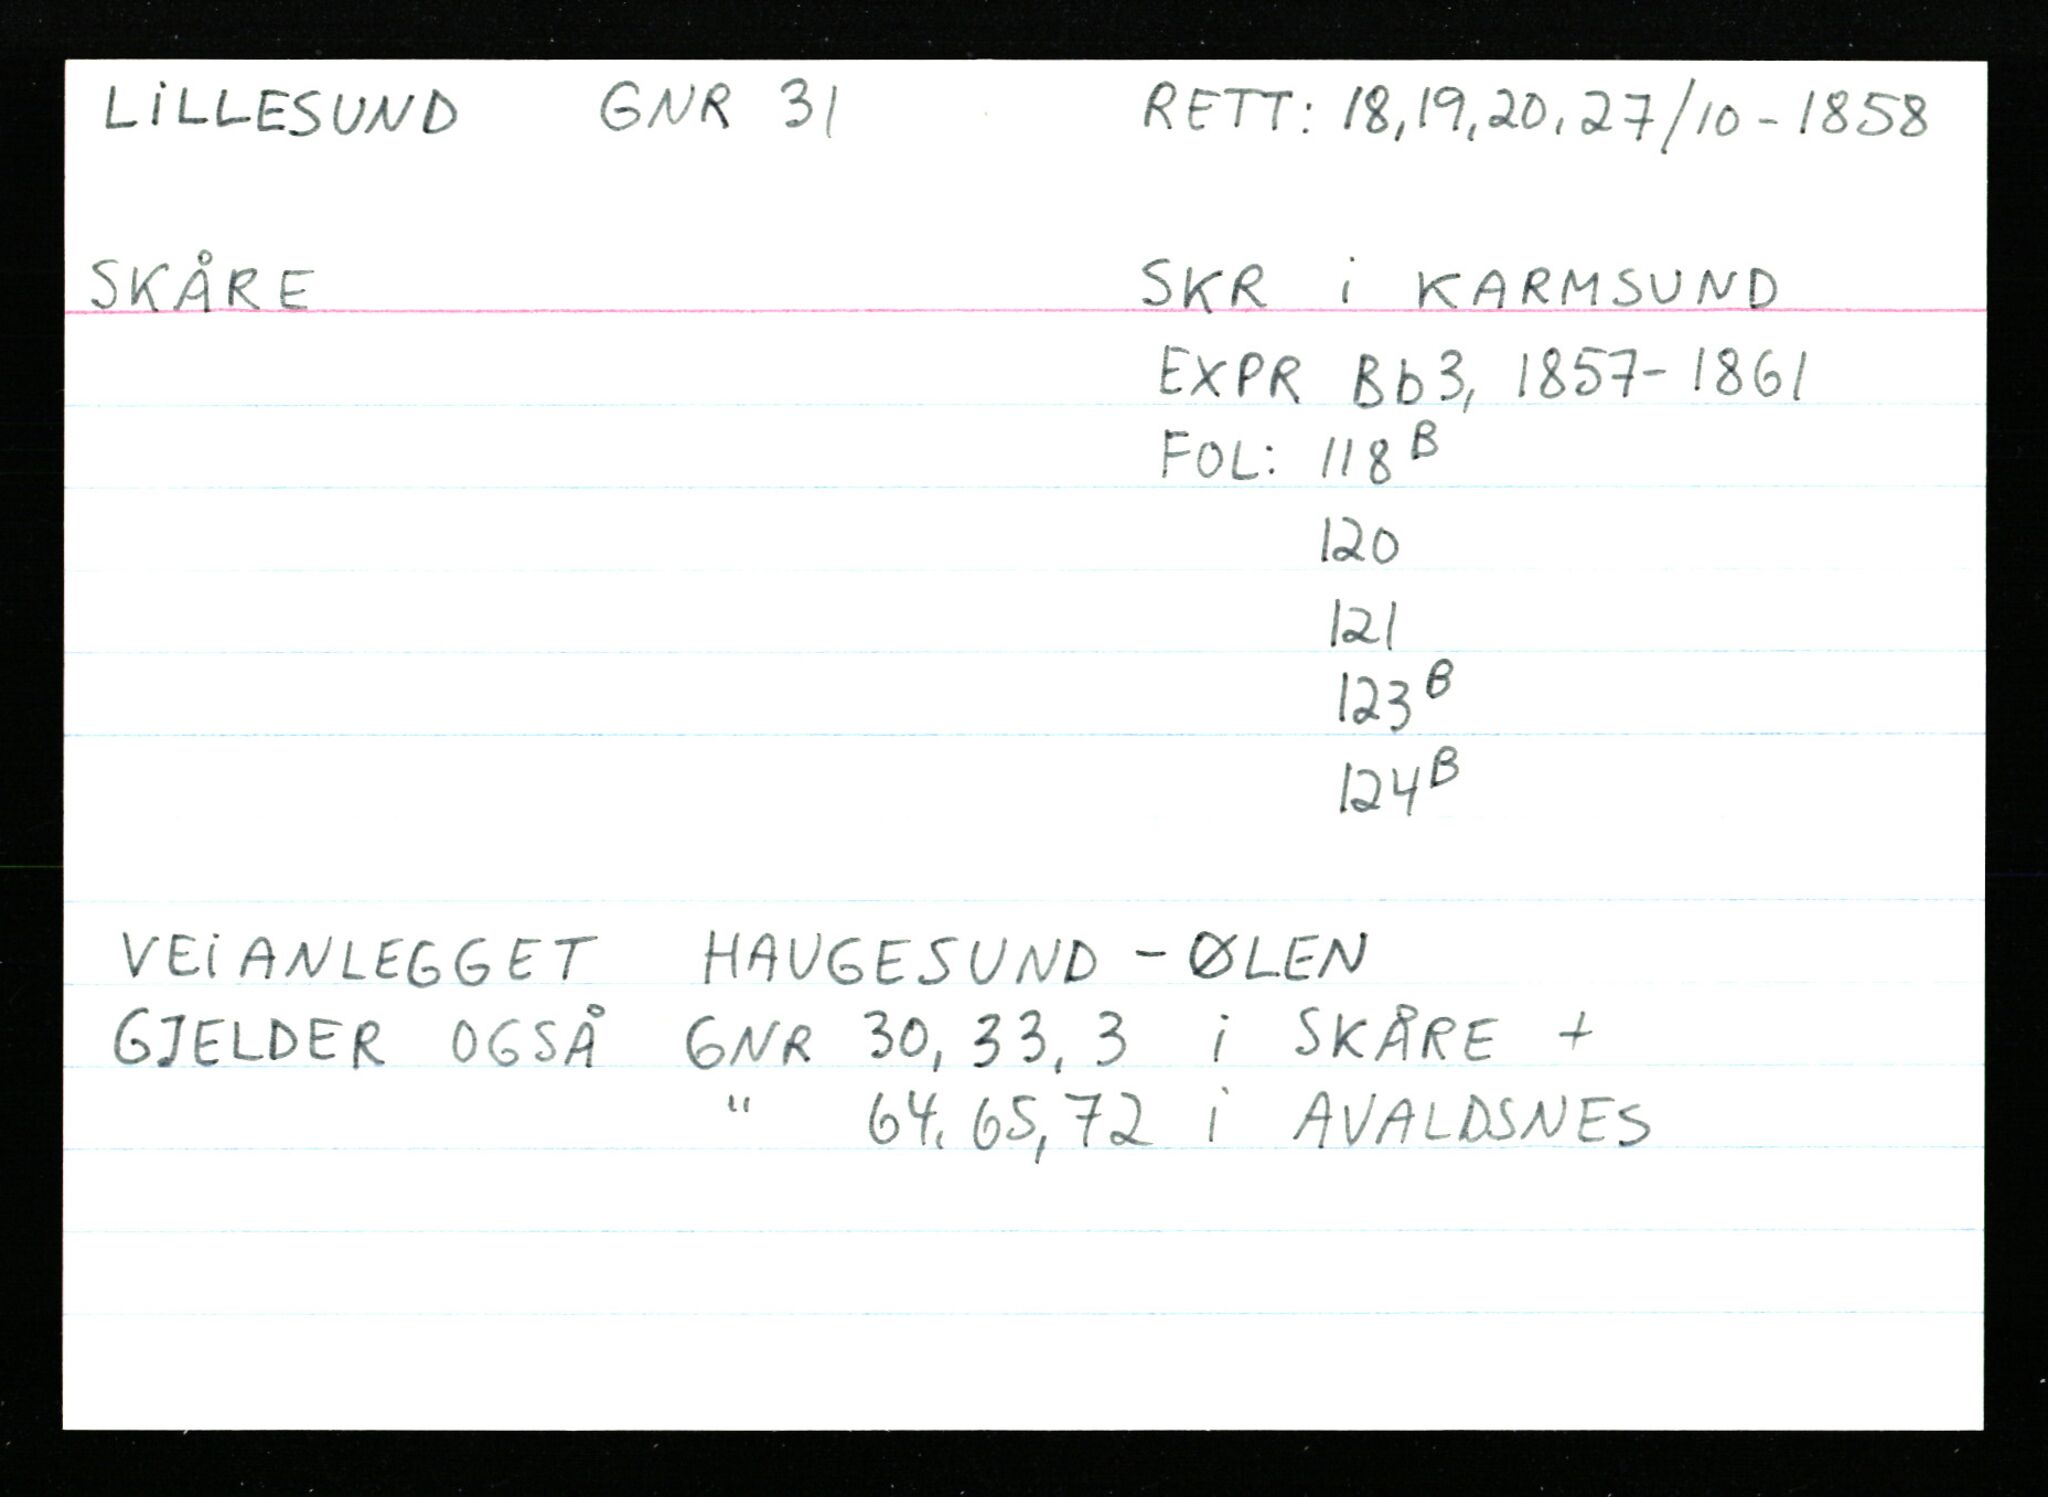 LiLLESUND GNR 31 RETT: 18,19,20,27/10-1858
SKÅRE SKR i KARMSUND
EXPR Bb3, 1857-1861
FOL: 118B
120
121
123B
124B
VEiANLEGGET HAUGESUND-ØLEN
GJELDER OGSÅ GNR 30, 33, 3 i SKÅRE +
" 64, 65, 72 i AVALDSNES